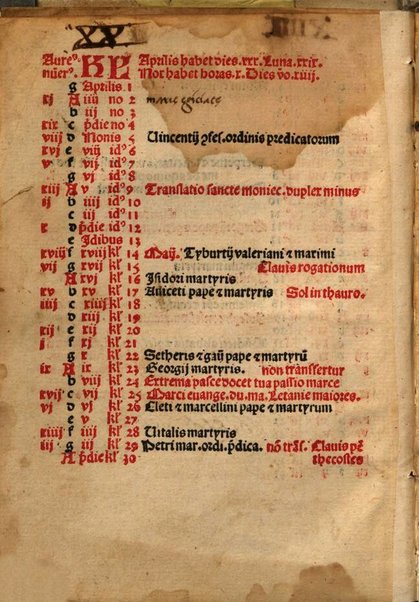 XX
Aureꝰ. KL Aprilis habet dies .xxx. Luna .xxix.
nūerꝰ. Nox habet horas .x. Dies vo .xiiij.
g Aprilis 1
xj A iiij no 2
b iij no 3
xix c p̄die no 4
viij d Nonis 5 Vincentij ꝯfes. ordinis predicatorum
xvj e viij idꝰ 6
v f vij idꝰ 7
g vj idꝰ 8
xiij A v idꝰ 9 Translatio sancte monice. duplex minus
ij b iiij idꝰ 10
c iij idꝰ 11
x d p̄die idꝰ 12
e Idibus 13
xviij f xviij kƚ 14 Maij. Tyburtij valeriani ⁊ maximi
vij g xvij kƚ 15 Clavis rogationum
A xvj kƚ 16 Isidori martyris
xv b xv kƚ 17 Aniceti pape ⁊ martyris Sol in thauro.
iiij c xiiij kƚ 18
d xiij kƚ 19
xij e xij kƚ 20
j f xj kƚ 21
g x kƚ 22 Sotheris ⁊ gaij pape ⁊ martyrū
ix A ix kƚ 23 Georgij martyris. non transfertur
b viij kƚ 24 Extrema pasce docet tua passio marce
xvij c vij kƚ 25 Marci evange. du. ma. Letanie maiores.
vj d vj kƚ 26 Cleti ⁊ marcellini pape ⁊ martyrum
e v kƚ 27
xiiij f iiij kƚ 28 Vitalis martyris
iij g iij kƚ 29 Petri mar. ordi. p̄dica. nō trāſ. Clavis pē
A p̄die kƚ 30 thecostes